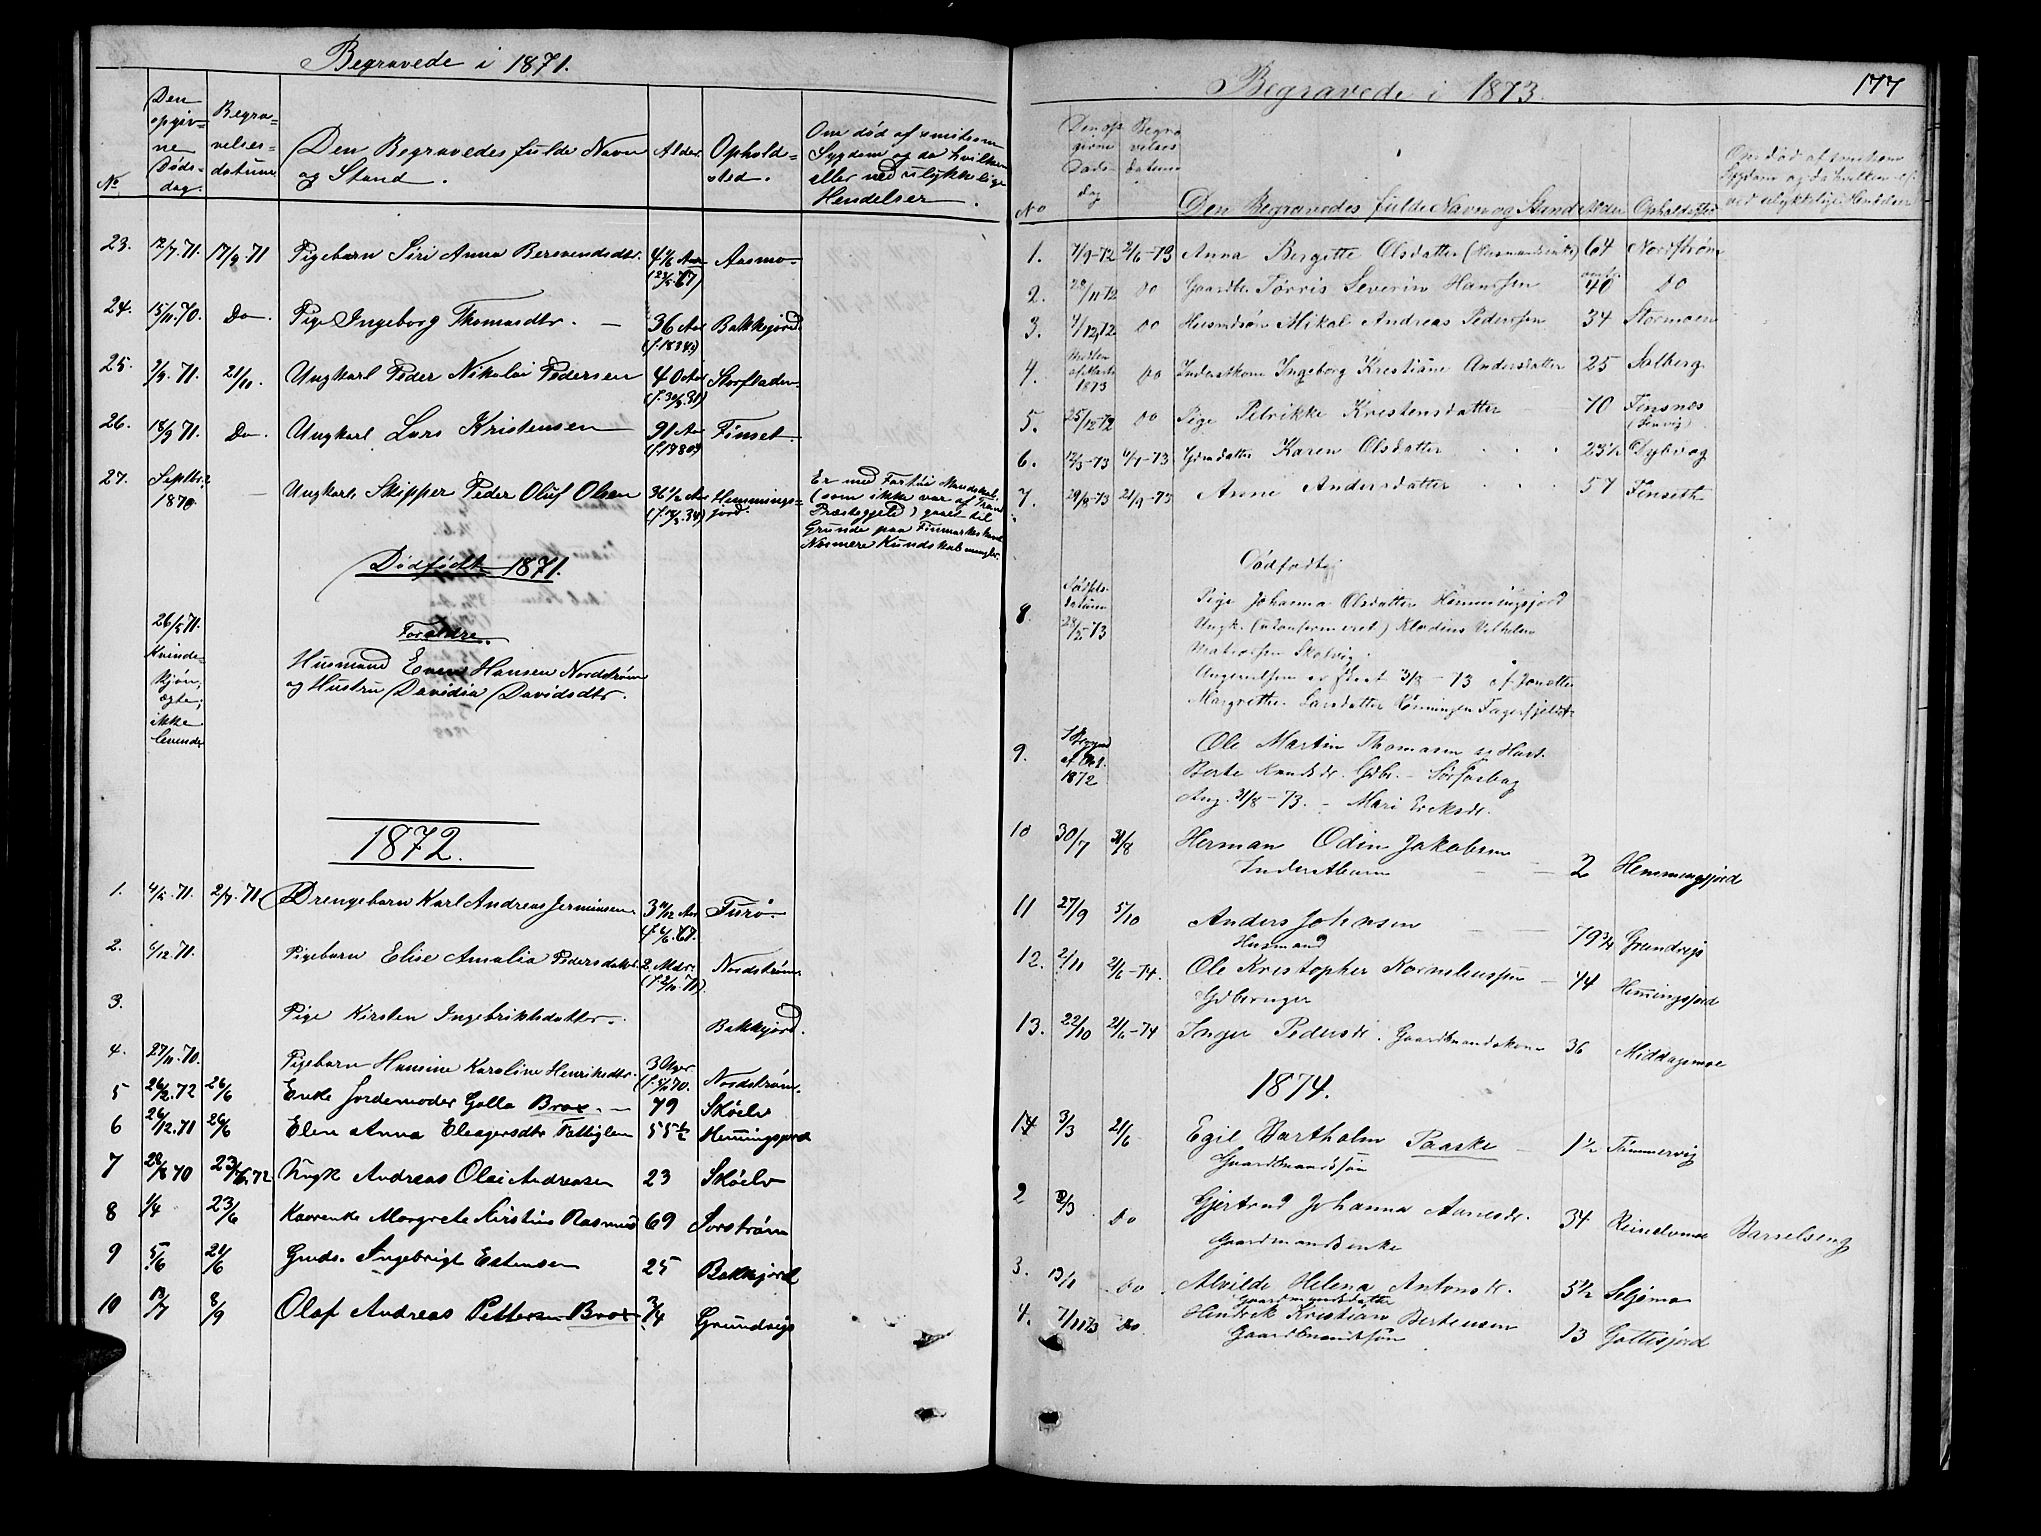 Begravede i 1871.
No
Den opgiv=
ne
Døds=
dag.
Begra=
velses=
datum
Den Begravedes fulde Navn
og Stand.
Alder.
Ophold=
sted.
Om død af smitsom
Sygdom og da hvilken
eller ved ulykkelige
Hendelser.
23. 12/7.71. 17/9 71 Pigebarn Siri Anna Berevendsdtr. 4 1/6 Aar Aasmo
24. 15/11.70. Do Pige Ingeborg Thomasdtr. — 36 Aar Bakkejord
(f. 1834)
25. 2/9.71. 21/10. Ungkarl Peder Nikolai Pedersen 40 Aar Storfladen
26. 18/9 71. Do Ungkarl Lars Kristensen 91 Aar Finset
(f. 1780)
27. Septbr — Ungkarl Skipper Peder Oluf Olsen 36 1/2 Aar Hemmings=
1870 jord.
Er med Fartøi Mandskab
(som ikke var af
Præstegjeld) gaaet til
Grunde paa Finmarkens
Nærmere Kundskab mangler.
Dødfødte 1871.
26/5 71.
Kvinde-
kjøn,
ægte,
ikke
levende
Forældre.
Husmand Even Hansen Nordstrøm
og Hustru Davidia Davidsdtr.
1872.
1. 4/5.71. 2/7.71 Drengebarn Karl Andreas Jerminsen. 3 Aar Furø
2. 6/12.71. Pigebarn Elise Amalia Pedersdatr 2 Mdr. Nordstrøm
(f. 2/10.71)
3. Pige Kirsten Ingebriktsdatter. Bakkejord.
4. 27/11.70. Pigebarn Hansine Karoline Henriksdtr. 3 Uger Nordstrøm.
5 26/2.72 26/6 Enke Jordemoder Golla Brox. — 79 Skøelv
6 26/12.71 26/6 Elen Anna Eleagersdtr Fattiglem 55 1/2 Hemingsjord
7 28/8 70 23/6.72 Ungk Andreas Olai Andreasen 23 Skøelv
8 1/4 23/6 Kaarenke Margrete Kirstine Rasmus 69 Sorstrøm
9 5/6 21/6 Gmds. Ingebrigt Estensen 25 Bakkejord
10 13/7 8/9 Olaf Andreas Pettersen Brox 3/4 Grundvig
Begravede i 1873.
177
No
Den op
givne
Døds-
dag
Begra
velses
datum
Den Begravedes fulde Navn og Stand Alder Opholdsted
Om død af smitsom
Sygdom og da hvilken el.
ved ulykkelige Hendelser
1. 7/9-72 21/6-73 Anna Bergitte Olsdatter (Husmandsenke) 64 Nordstrøm
2. 28/11-72 do Gaardbr. Tørris Severin Hanssen omtr. 40 do
3. 4/12 72 do Husmdsøn Mikal Andreas Pederssen 34 Stormoen
4. Midten
af Marts
1873 do Inderstkone Ingeborg Kristiane Andersdatter 25 Solberg
5. 25/12 72 do Pige Petrikke Kristensdatter 70 Finsnes
6. 12/5-73 6/7-73 Gdmdatter Karen Olsdatter 23 1/2 Dybvag
7. 29/8-73 21/9-73 Anne Andersdatter 57 Finseth
Dødfødte:
8 Fødsels-
datum
28/2-73
Pige Johanna Olsdatter Hemmingsjord
Ungk. (ukonfirmeret) Kladius Vilhelm
Mathisen Skolvig
Angivelsen er skeet 3/8-73 af Jonetta
Margrethe Larsdatter Rønningen Fagerfjeldet
9. I Begynd
af Okt.
1872
Ole Martin Thomasen og Hust.
Berte Knudsdr. Gdbr. — Sørfarbag
Ang. 31/8-73. — Mari Eriksdr.
10 30/7 31/8 Herman Odin Jakobsen
Inderstbarn — 2 Hemmingsjord
11 27/9 5/10 Anders Johnsen
Husmand 79 3/4 Grundvig
12. 2/11 21/6-74. Ole Kristopher Korneliussen — 44 Hemingsjord
Gdbruger
13. 22/10 21/6-74 Inger Pedersdr. Gaardmandskone 36 Middagsnæs
1874.
14 3/3 21/6 Egil Bartholm Paaske — 1 1/2 Tømmervig
Gaardmandssøn
2 2/3 Do Gjertrud Johanna Aanesdr. 34 Reindomo Barselseng
Gaardmandsenke
3. 13/1 do Alvilde Helena Antonsdr. 5 1/2 Seljemo
Gaardmandsdatter
4. 7/11 73 Do Hendrik Kristian Berteussen
Gaardmandssøn 13 Gottesjord